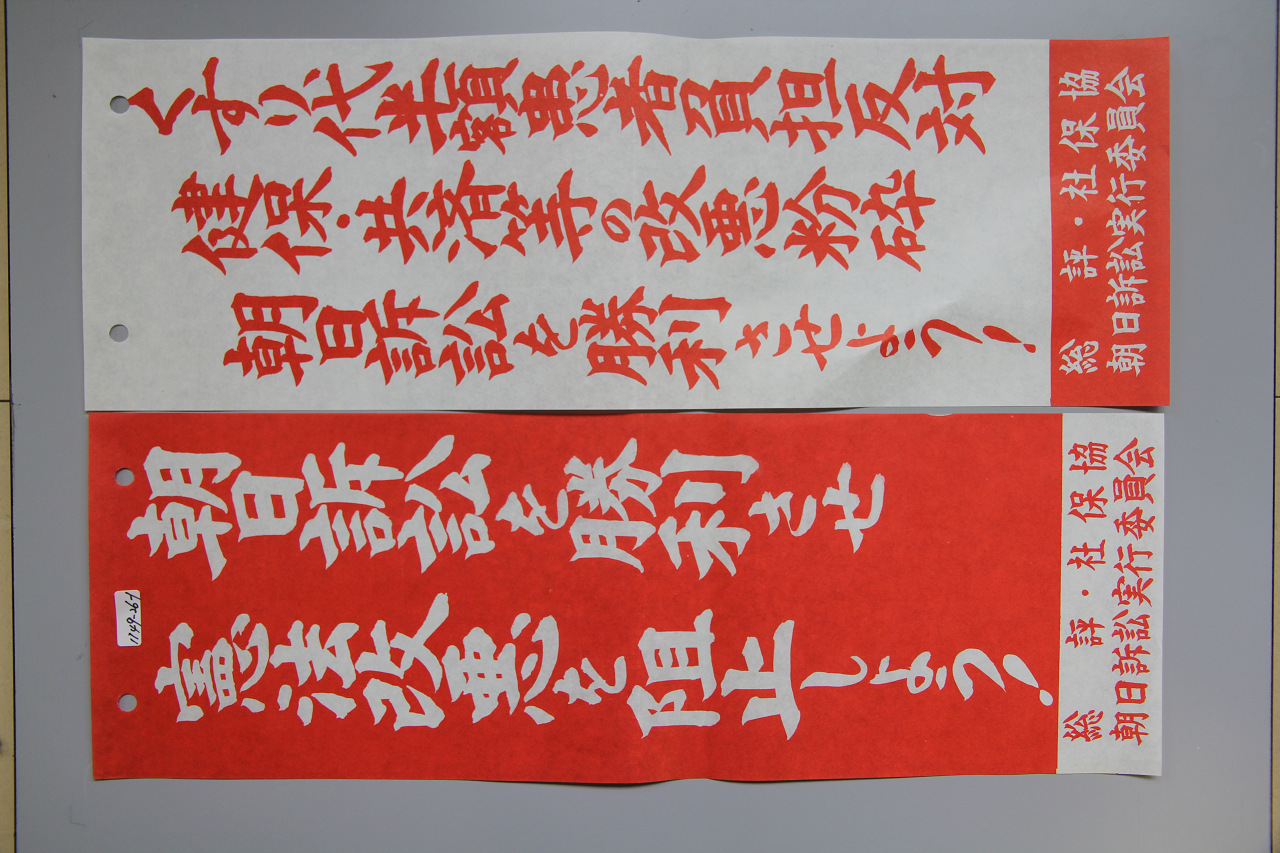 くすり代半額患者負担反対
健保・共済等の改悪粉砕
朝日訴訟を勝利させよう!
総評・社保協
朝日訴訟実行委員会
朝日訴訟を勝利させ
憲法改悪を阻止しよう!
総評・社保協
朝日訴訟実行委員会
1149-267